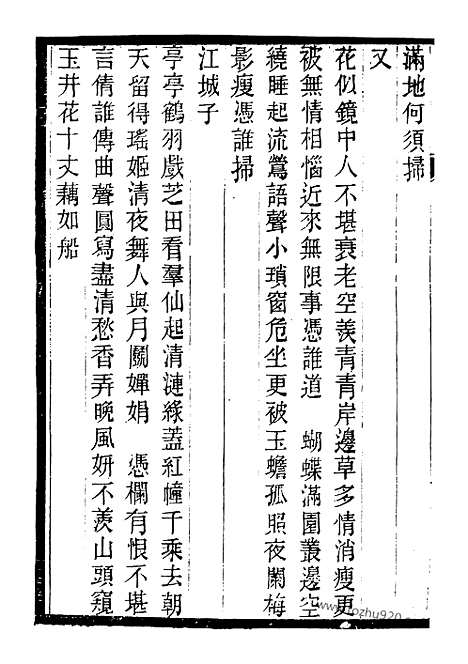 滿地何須掃
又
花似鏡中人不堪衰老空羨青青岸邊草多情消瘦更
被無情相惱近來無限事憑誰道　蝴蝶滿園叢邊空
繞睡起流鶯語聲小瑣窗危坐更被玉蟾孤照夜闌梅
影瘦憑誰掃
江城子
亭亭鶴羽戲芝田看羣仙起清漣綠蓋紅幢千乘去朝
天留得瑤姬清夜舞人與月關嬋娟　憑欄有恨不堪
言倩誰傳曲聲圓寫盡清愁香弄晚風妍不羨山頭窺
玉井花十丈藕如船